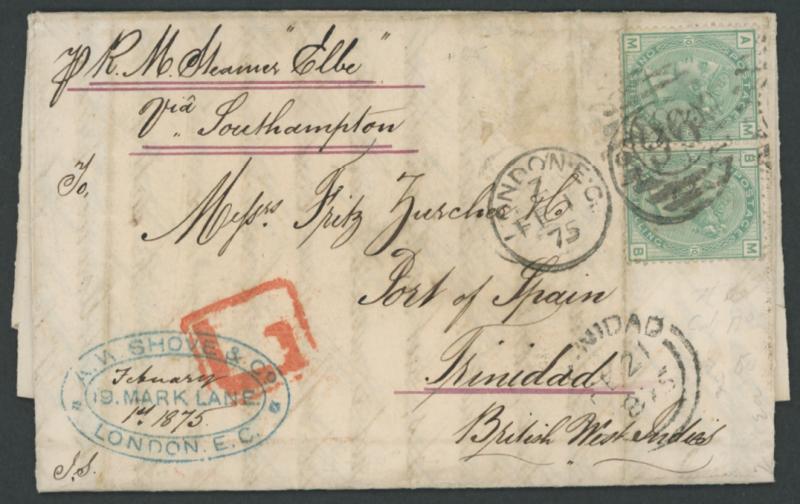 p R. M. Steamer "Elbe"
Via Southampton
To,
Messrs Fritz Zurcher & Co
Port of Spain
Trinidad
British West Indies
J.S.
LONDON. E.C.
7
75
TRINIDAD
21
L1
A. W. SHOVE & Co.
February
19. MARK LANE
1st 1875
LONDON. E.C.
A M
POSTAGE
10
M A
B M
POSTAGE
10
M B